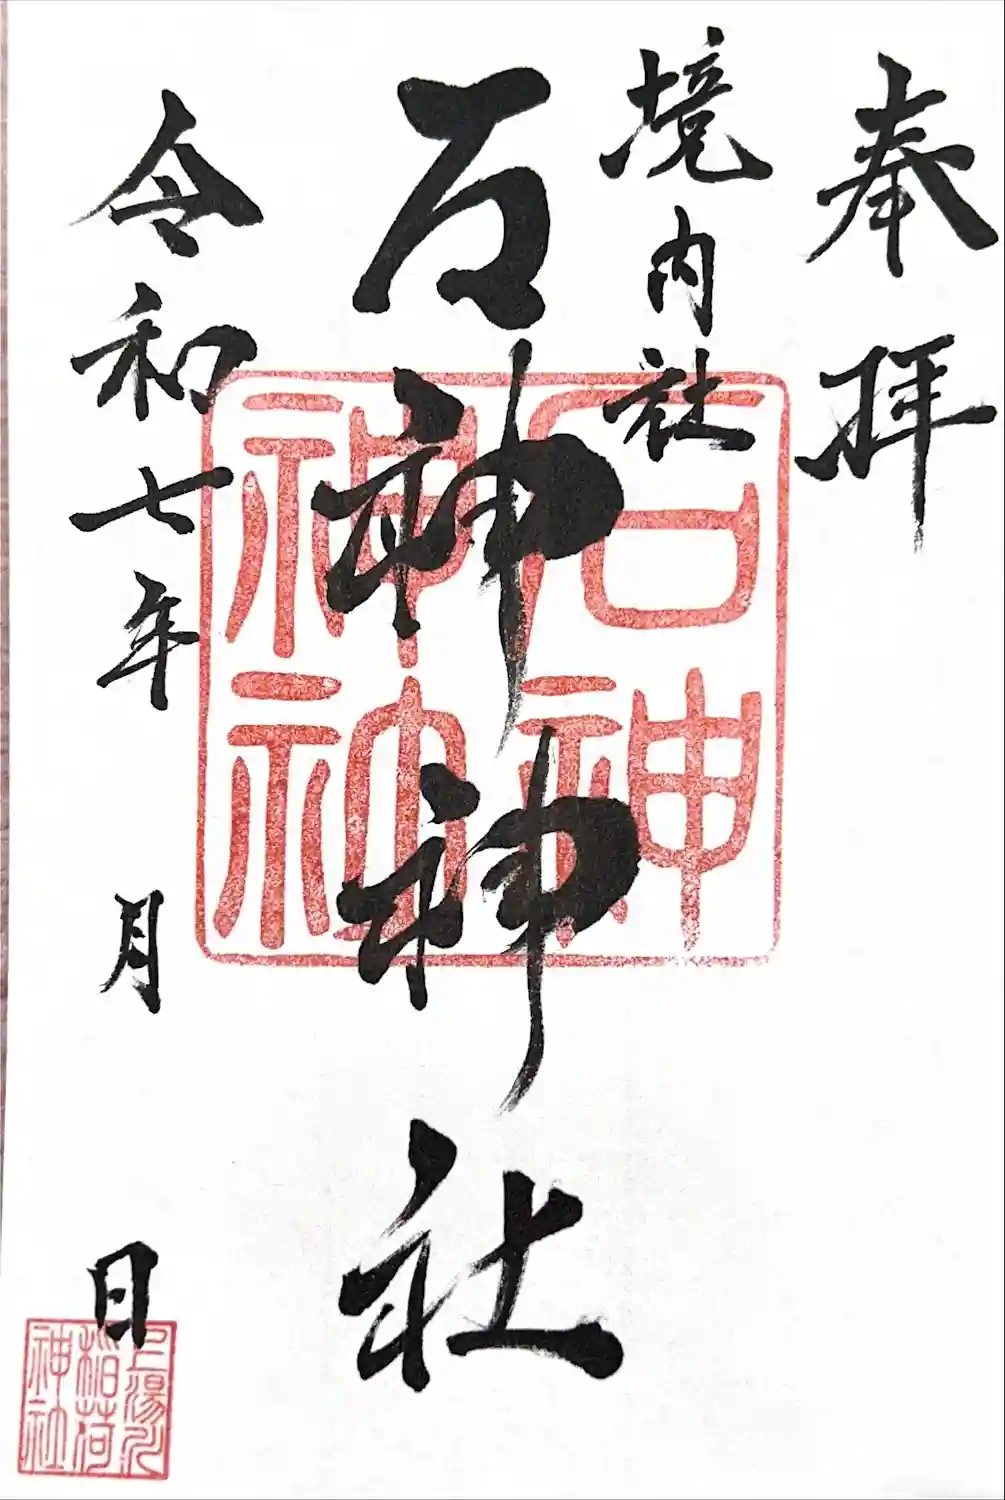 奉拝
境内社
石神神社
令和七年 月 日
石神
神
上湯川
稲荷
神社